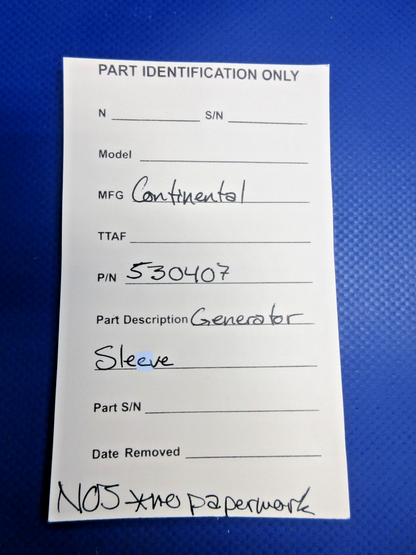 PART IDENTIFICATION ONLY
N S/N
Model
MFG Continental
TTAF
P/N 530407
Part Description Generator
Sleeve
Part S/N
Date Removed
NOS *no paperwork